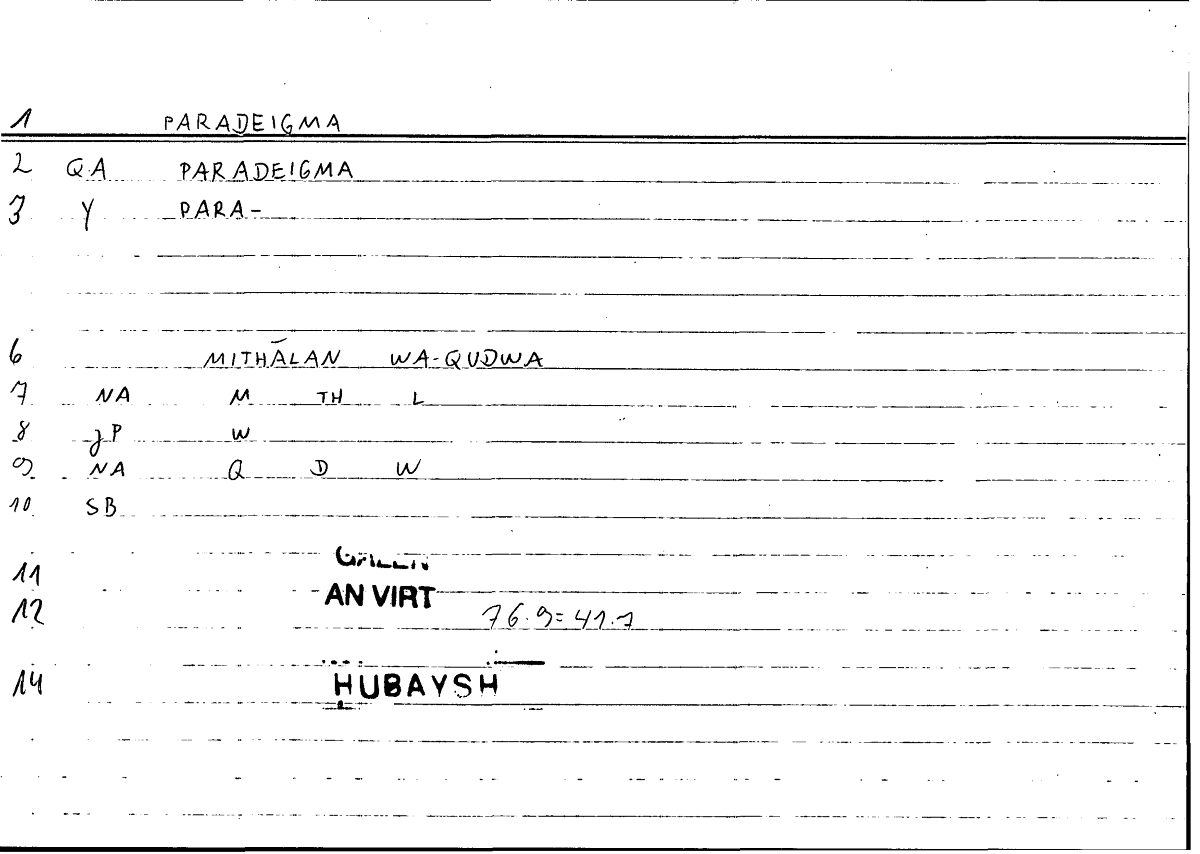 1 PARADEIGMA
2 QA PARADEIGMA
3 Y PARA-
6 MITHĀLAN WA-QUDWA
7 NA M TH L
8 JP W
9 NA Q D W
10 SB
11 GALEN
12 AN VIRT 76.9=41.7
14 HUBAYSH